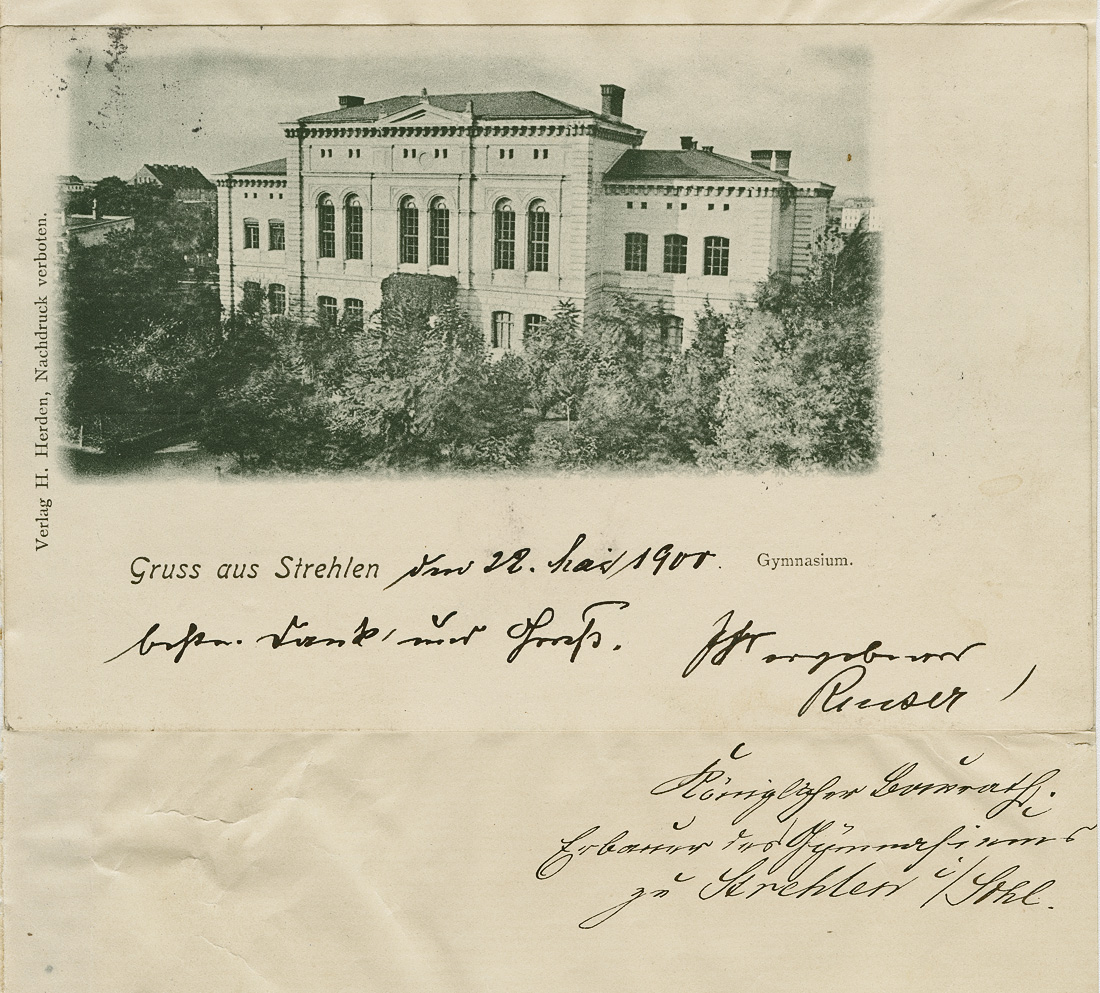 Verlag H. Herden, Nachdruck verboten.
Gruss aus Strehlen den 22. Mai 1900. Gymnasium.
besten Dank und Gruß. Ihr ergebener
Reuser
Königlicher Baurath.
Erbauer des Gymnasiums
zu Strehlen i/Schl.